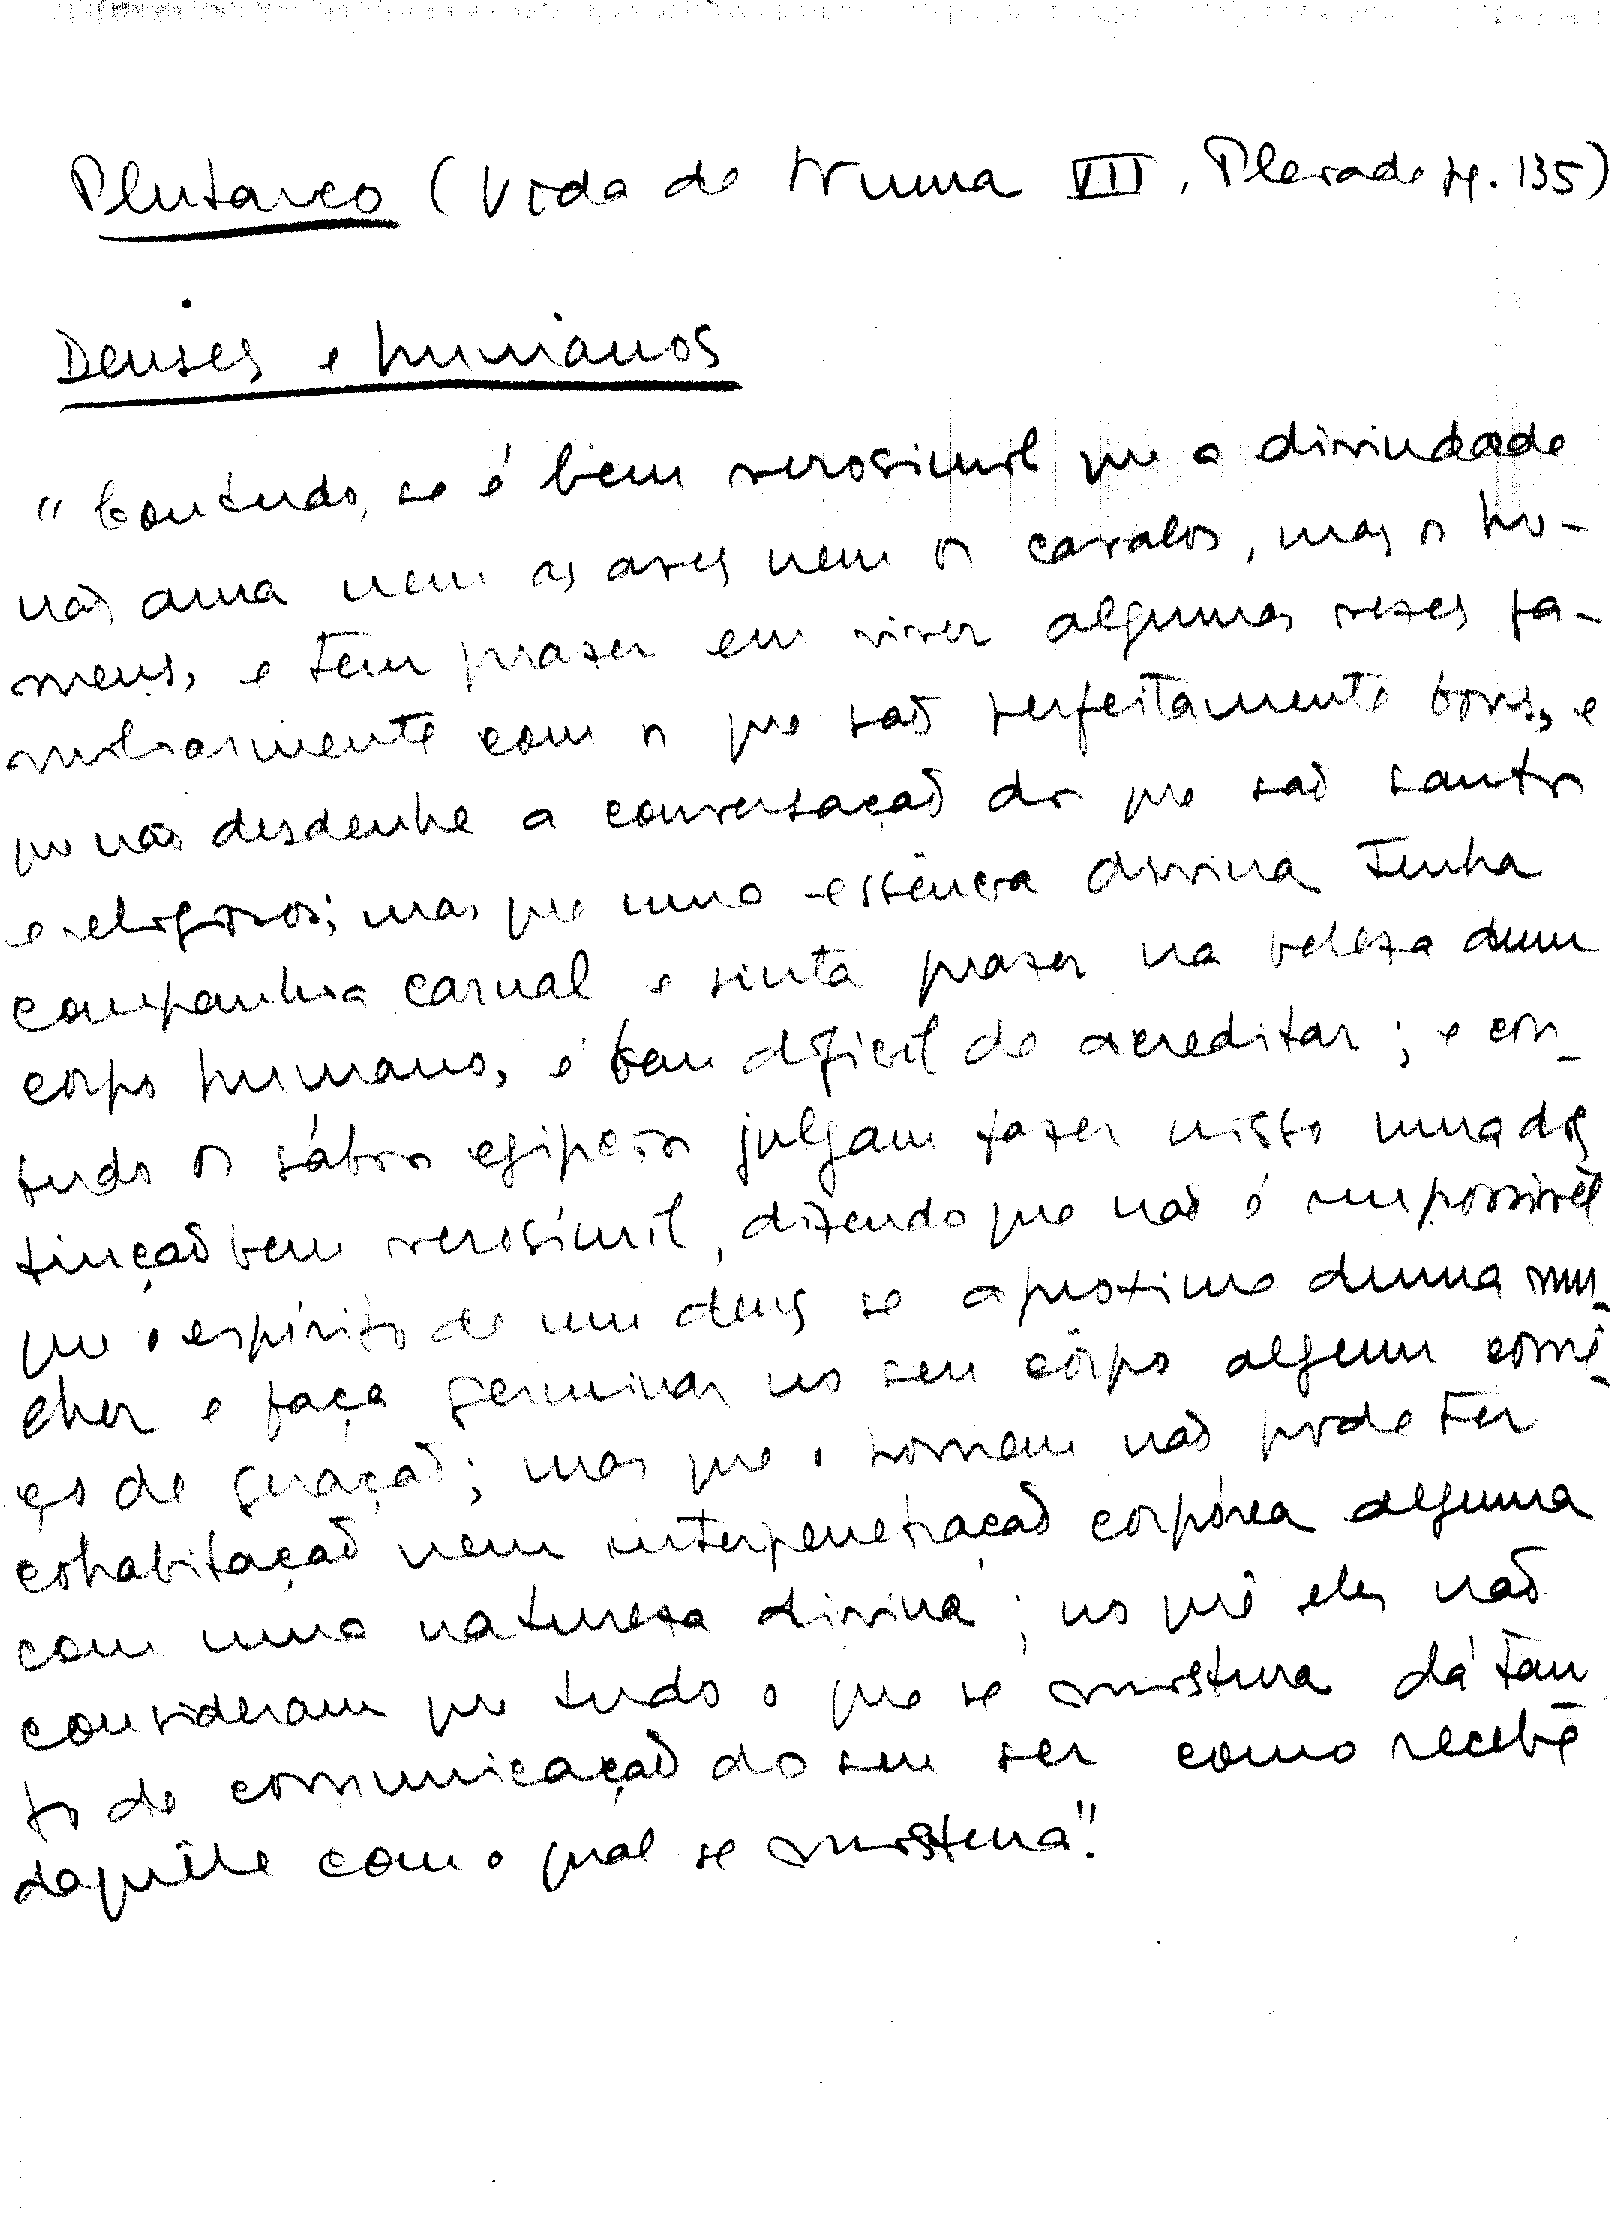 Plutarco (Vida de Numa VII, Pleiade pg. 135)
Deuses e humanos
"Contudo, se é bem verosimil que a divindade
não ama nem as aves nem os cavalos, mas os ho-
mens, e tem prazer em viver algumas vezes fa-
miliarmente com os que são perfeitamente bons, e
que não desdenhe a conversação dos que são santos
e religiosos; mas que uma essência divina tenha
companhia carnal e sinta prazer na beleza dum
corpo humano, é bem dificil de acreditar; e con-
tudo os sábios egipcios julgam fazer nisto uma dis
tinção bem verosímil, dizendo que não é impossivel
que o espírito de um deus se aproxime duma mu-
lher e faça germinar no seu côrpo algum come-
ço de geração; mas que o homem não pode ter
cohabitação nem interpenetração corpórea alguma
com uma natureza divina; no quê eles não
consideram que tudo o que se mistura dá tan
to de comunicação do seu ser como recebe
daquêle com o qual se mistura".